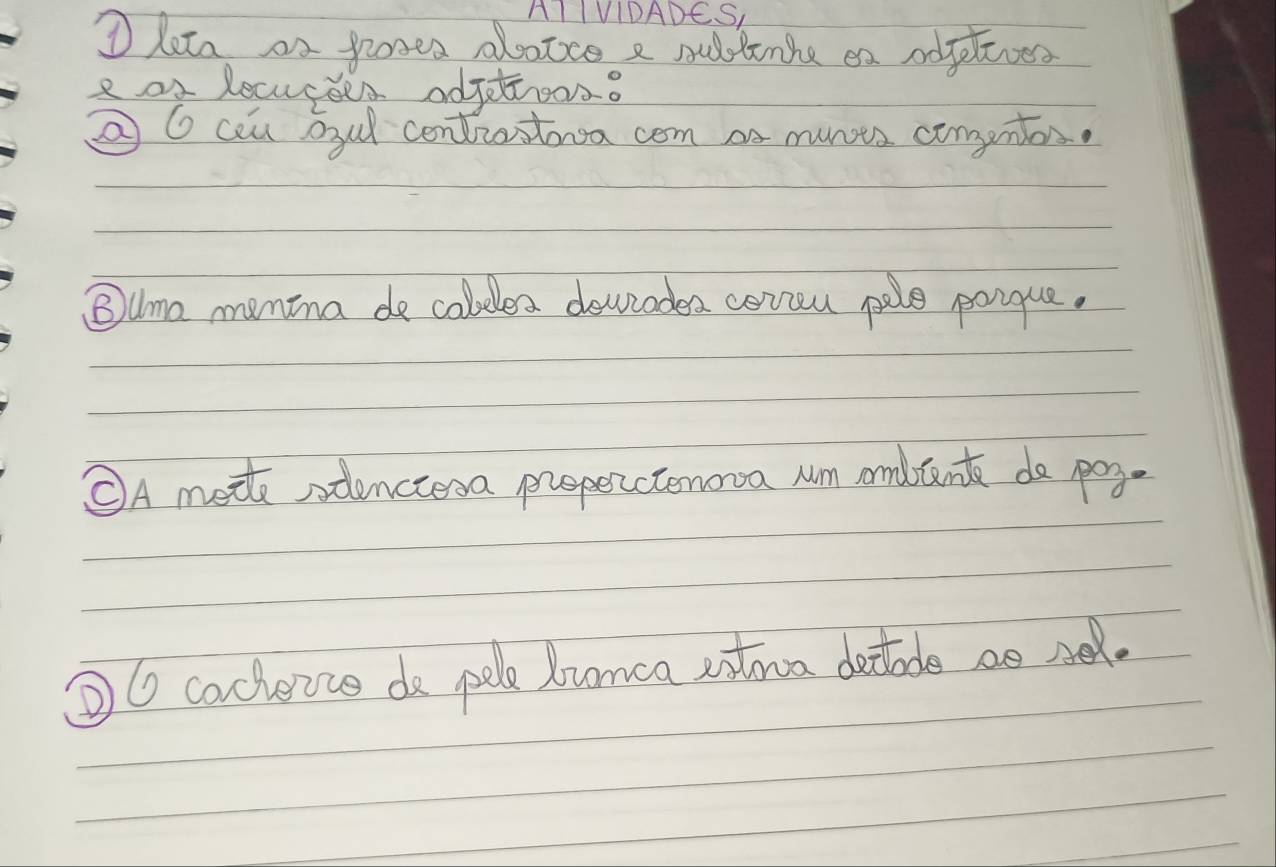 ATIVIDADES,
① Leia as frases abaixo e sublinhe os adjetivos
e as locuções adjetivas:
ⓐ O céu azul contrastava com as nuvens cinzentas.
Ⓑ Uma menina de cabelos dourados correu pelo parque.
Ⓒ A noite silenciosa proporcionava um ambiente de paz.
Ⓓ O cachorro de pelo branca estava deitado ao sol.